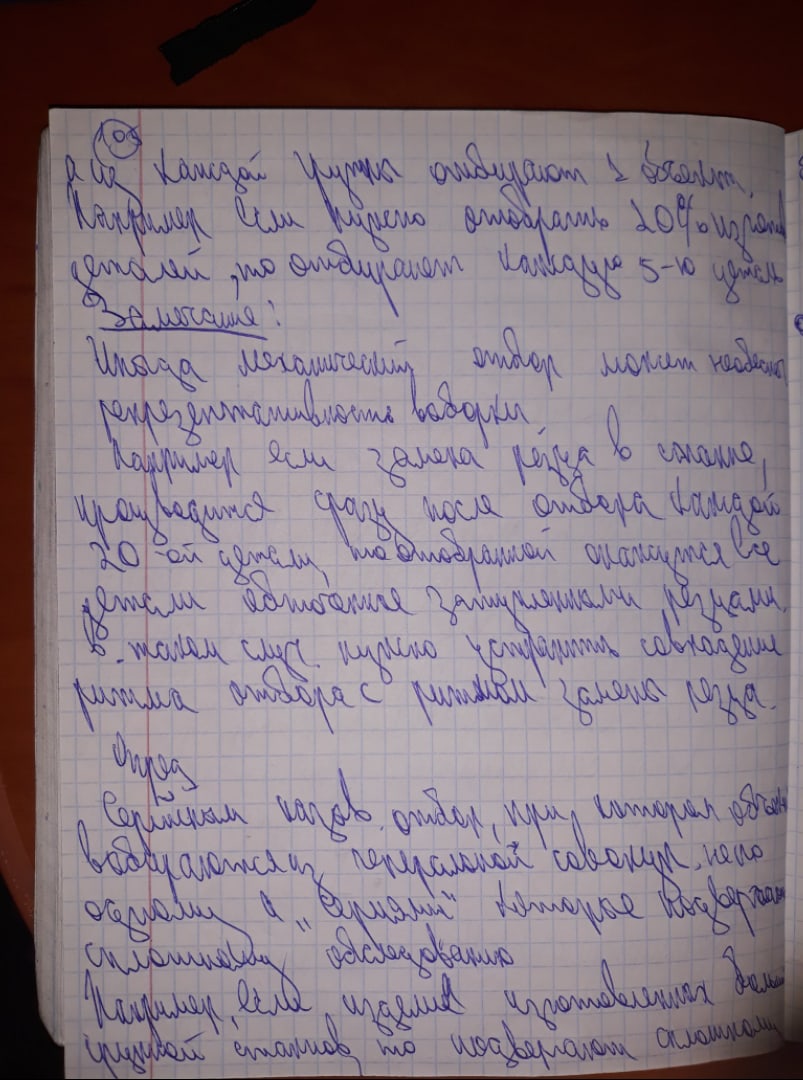 105
а из каждой группы отбирают 1 объект.
Например если нужно отобрать 20% изготов
деталей, то отбирают каждую 5-ю деталь
Замечание:
Иногда механический отбор может необеспеч
репрезентативность выборки.
Например если замена резца в станке,
производится сразу после отбора каждой
20-ой детали, то отобранной окажутся все
детали обточенные затупленными резцами.
В таком случ. нужно устранить совпадение
ритма отбора с ритмом замены резца.
Опред
Серийным назыв. отбор, при котором объек
выбираются из генеральной совокуп. не по
одному а „сериями" которые подвергают
сплошному обследованию
Например, если изделия изготовленных больш
группой станков то подвергают сплошному